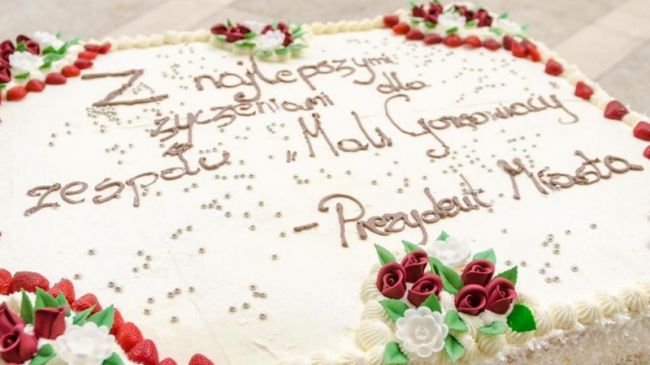 Z najlepszymi
życzeniami dla
zespołu „Mali Gorzowiacy
- Prezydent Miasta